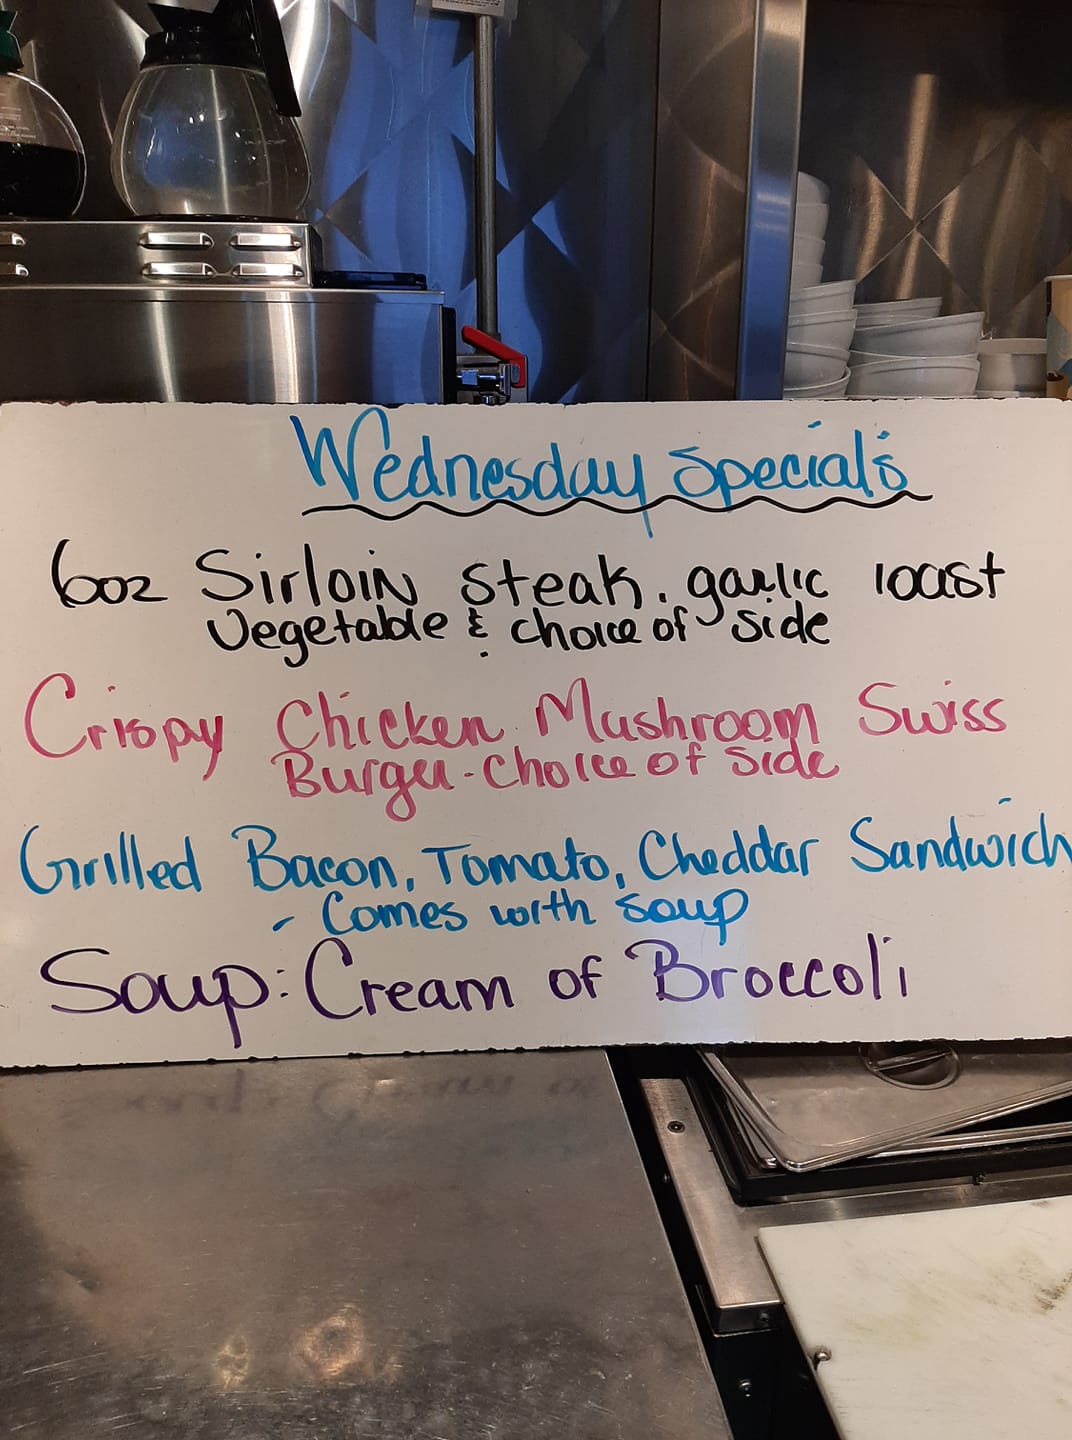 Wednesday Special's
6oz Sirloin Steak. garlic toast
Vegetable & choice of side
Crispy Chicken Mushroom Swiss
Burger - Choice of side
Grilled Bacon, Tomato, Cheddar Sandwich
- Comes with soup
Soup: Cream of Broccoli